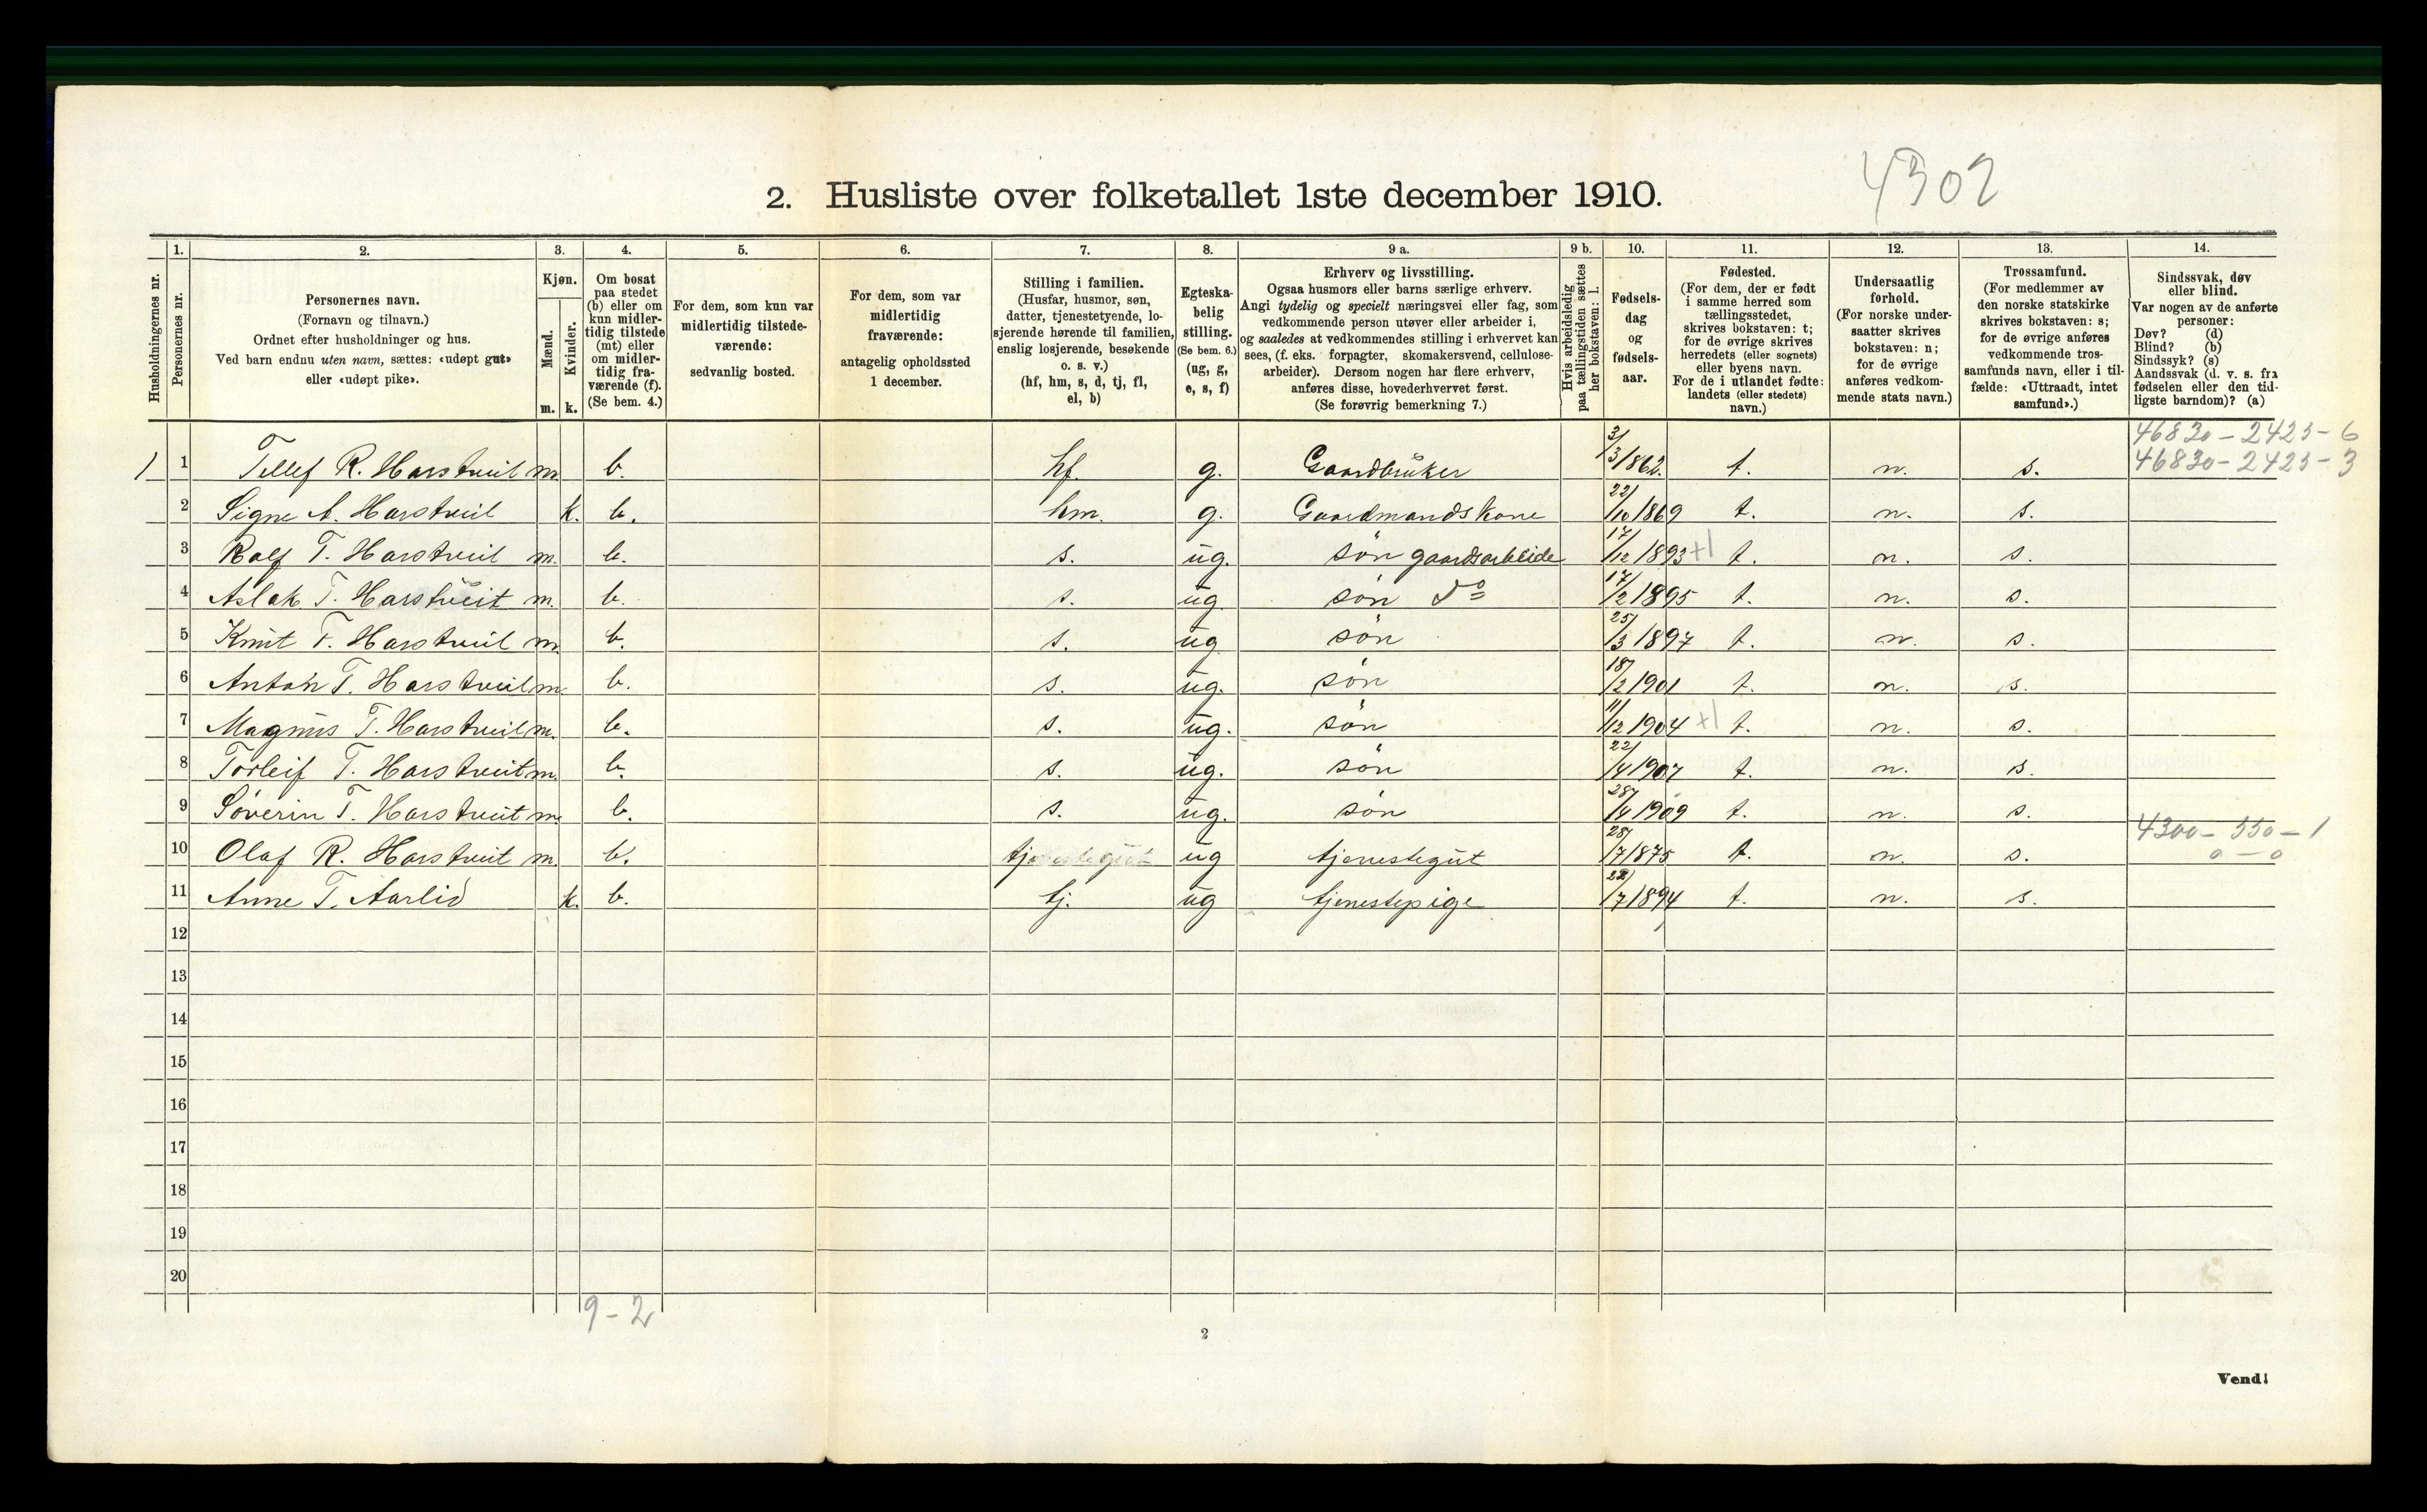 4302
2. Husliste over folketallet 1ste december 1910.
Husholdningernes nr.
1. Personernes nr.
2. Personernes navn.
(Fornavn og tilnavn.)
Ordnet efter husholdninger og hus.
Ved barn endnu uten navn, sættes: «udøpt gut»
eller «udøpt pike».
3. Kjøn.
Mænd. m.
Kvinder. k.
4. Om bosat
paa stedet
(b) eller om
kun midler-
tidig tilstede
(mt) eller
om midler-
tidig fra-
værende (f).
(Se bem. 4.)
5. For dem, som kun var
midlertidig tilstede-
værende:
sedvanlig bosted.
6. For dem, som var
midlertidig
fraværende:
antagelig opholdssted
1 december.
7. Stilling i familien.
(Husfar, husmor, søn,
datter, tjenestetyende, lo-
sjerende hørende til familien,
enslig losjerende, besøkende
o. s. v.)
(hf, hm, s, d, tj, fl,
el, b)
8. Egteska-
belig
stilling.
(Se bem. 6.)
(ug, g,
e, s, f)
9 a. Erhverv og livsstilling.
Ogsaa husmors eller barns særlige erhverv.
Angi tydelig og specielt næringsvei eller fag, som
vedkommende person utøver eller arbeider i,
og saaledes at vedkommendes stilling i erhvervet kan
sees, (f. eks. forpagter, skomakersvend, cellulose-
arbeider). Dersom nogen har flere erhverv,
anføres disse, hovederhvervet først.
(Se forøvrig bemerkning 7.)
9 b. Hvis arbeidsledig
paa tællingstiden sættes
her bokstaven: l.
10. Fødsels-
dag
og
fødsels-
aar.
11. Fødested.
(For dem, der er født
i samme herred som
tællingsstedet,
skrives bokstaven: t;
for de øvrige skrives
herredets (eller sognets)
eller byens navn.
For de i utlandet fødte:
landets (eller stedets)
navn.)
12. Undersaatlig
forhold.
(For norske under-
saatter skrives
bokstaven: n;
for de øvrige
anføres vedkom-
mende stats navn.)
13. Trossamfund.
(For medlemmer av
den norske statskirke
skrives bokstaven: s;
for de øvrige anføres
vedkommende tros-
samfunds navn, eller i til-
fælde: «Uttraadt, intet
samfund».)
14. Sindssvak, døv
eller blind.
Var nogen av de anførte
personer:
Døv? (d)
Blind? (b)
Sindssyk? (s)
Aandssvak (d. v. s. fra
fødselen eller den tid-
ligste barndom)? (a)
46830 - 2425 - 6
46830 - 2425 - 3
1 1 Tellef R. Harstveit m. b. hf. g. Gaardbruker 3/3 1862. t. n. s.
2 Signe A. Harstveit k. b. hm. g. Gaardmandskone 22/10 1869 t. n. s.
3 Rolf T. Harstveit m. b. s. ug. søn gaardsarbeide 17/12 1893 +1 t. n. s.
4 Aslak T. Harstveit m. b. s. ug. søn do 17/2 1895 t. n. s.
5 Knut T. Harstveit m. b. s. ug søn 25/3 1897 t. n. s.
6 Anton T. Harstveit m. b. s. ug. søn 18/2 1901 t. n. s.
7 Magnus T. Harstveit m. b. s. ug. søn 11/12 1904 +1 t. n. s.
8 Torleif T. Harstveit m. b. s. ug. søn 22/4 1907 t. n. s.
9 Søverin T. Harstveit m. b. s. ug. søn 28/4 1909 t. n. s.
4300 - 550 - 1
0 - 0
10 Olaf R. Harstveit m. b. tjenestegut ug tjenestegut 28/7 1875 t. n. s.
11 Anne T. Aarlid k. b. tj. ug tjenestepige 22/7 1894 t. n. s.
12
13
14
15
16
17
18
19
20
9 - 2
2
Vend!